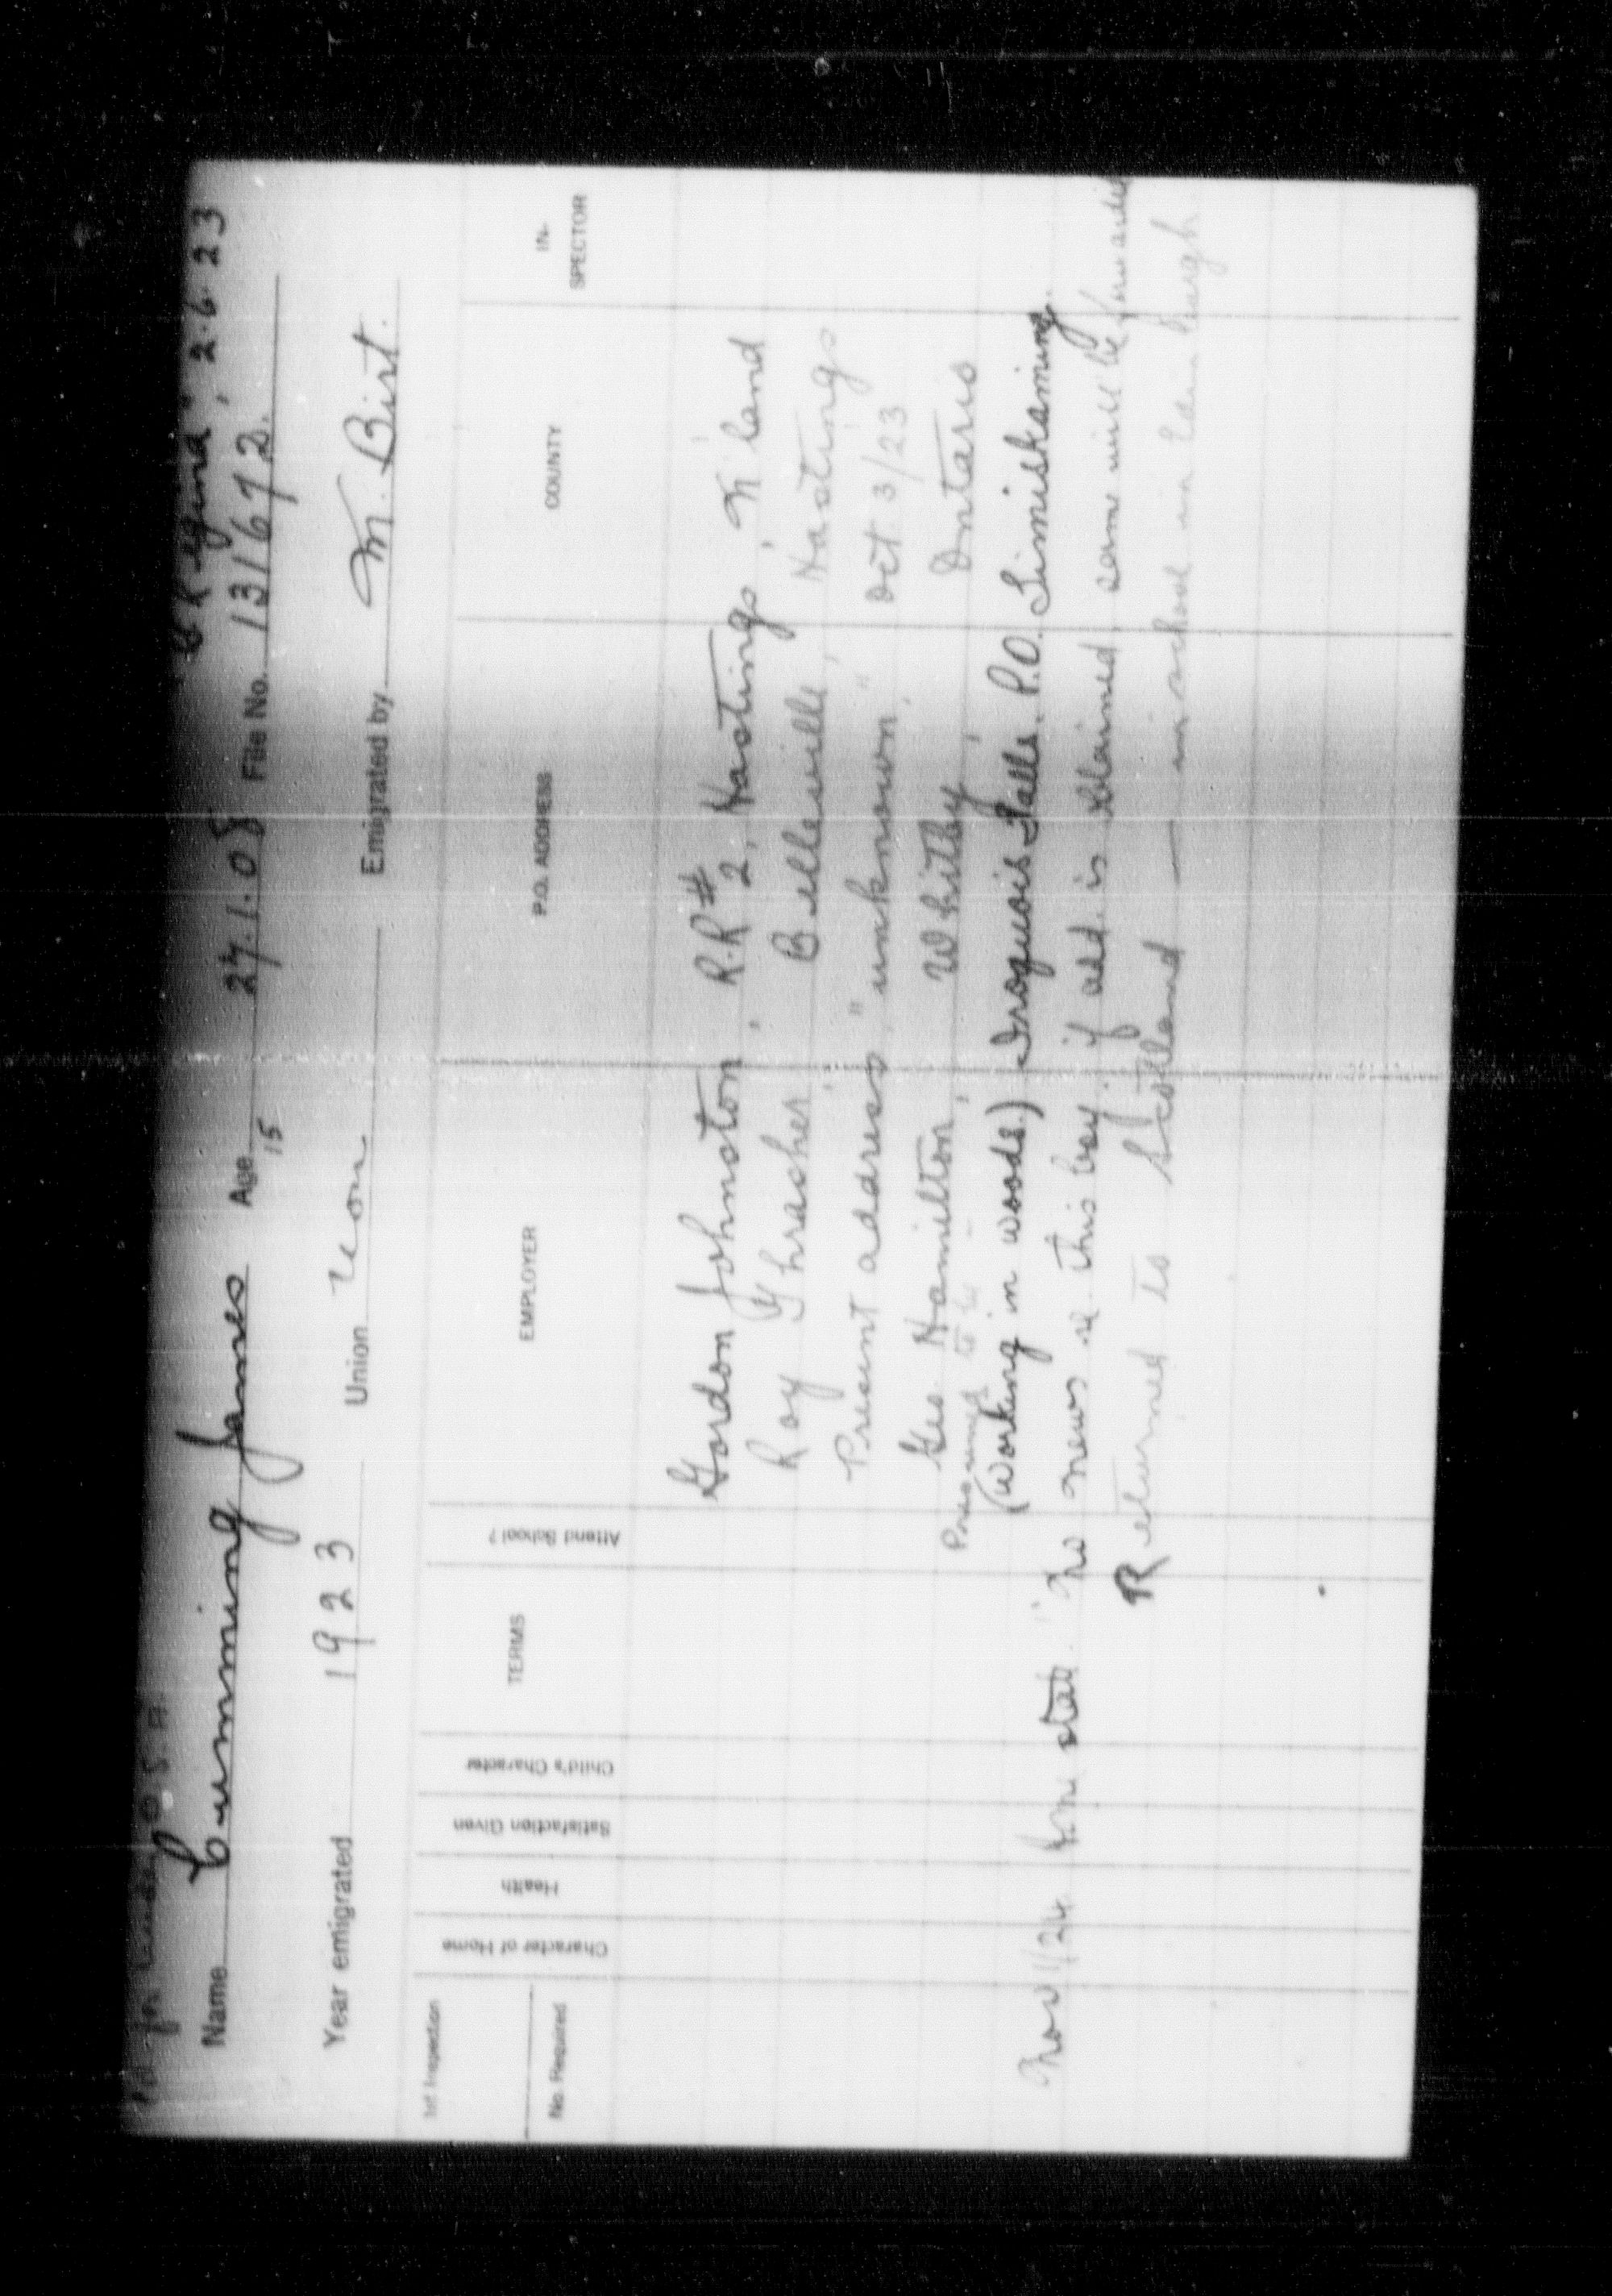 "Regina", 2.6.23
Name Cumming James Age 27.1.08 File No. 131672.
15
Year emigrated 1923 Union Non Emigrated by M. Birt.
Int Inspection
No. Required
Character of Home
Health
Satisfaction Given
Child's Character
TERMS
Attend School?
EMPLOYER
P.O. ADDRESS
COUNTY
IN-
SPECTOR
Gordon Johnston, R.R # 2, Hastings, N'land
Roy Thrasher, Belleville, Hastings
Present address, "unknown" Oct 3/23
Geo Hamilton, Whitby, Ontario
Presumed to be
(Working in woods.) Iroquois Falls. P.O. Timiskaming.
Nov 1/24 state. "No news re this boy if add. is claimed, same will be forwarded
Returned to Scotland — in school in Edinburgh